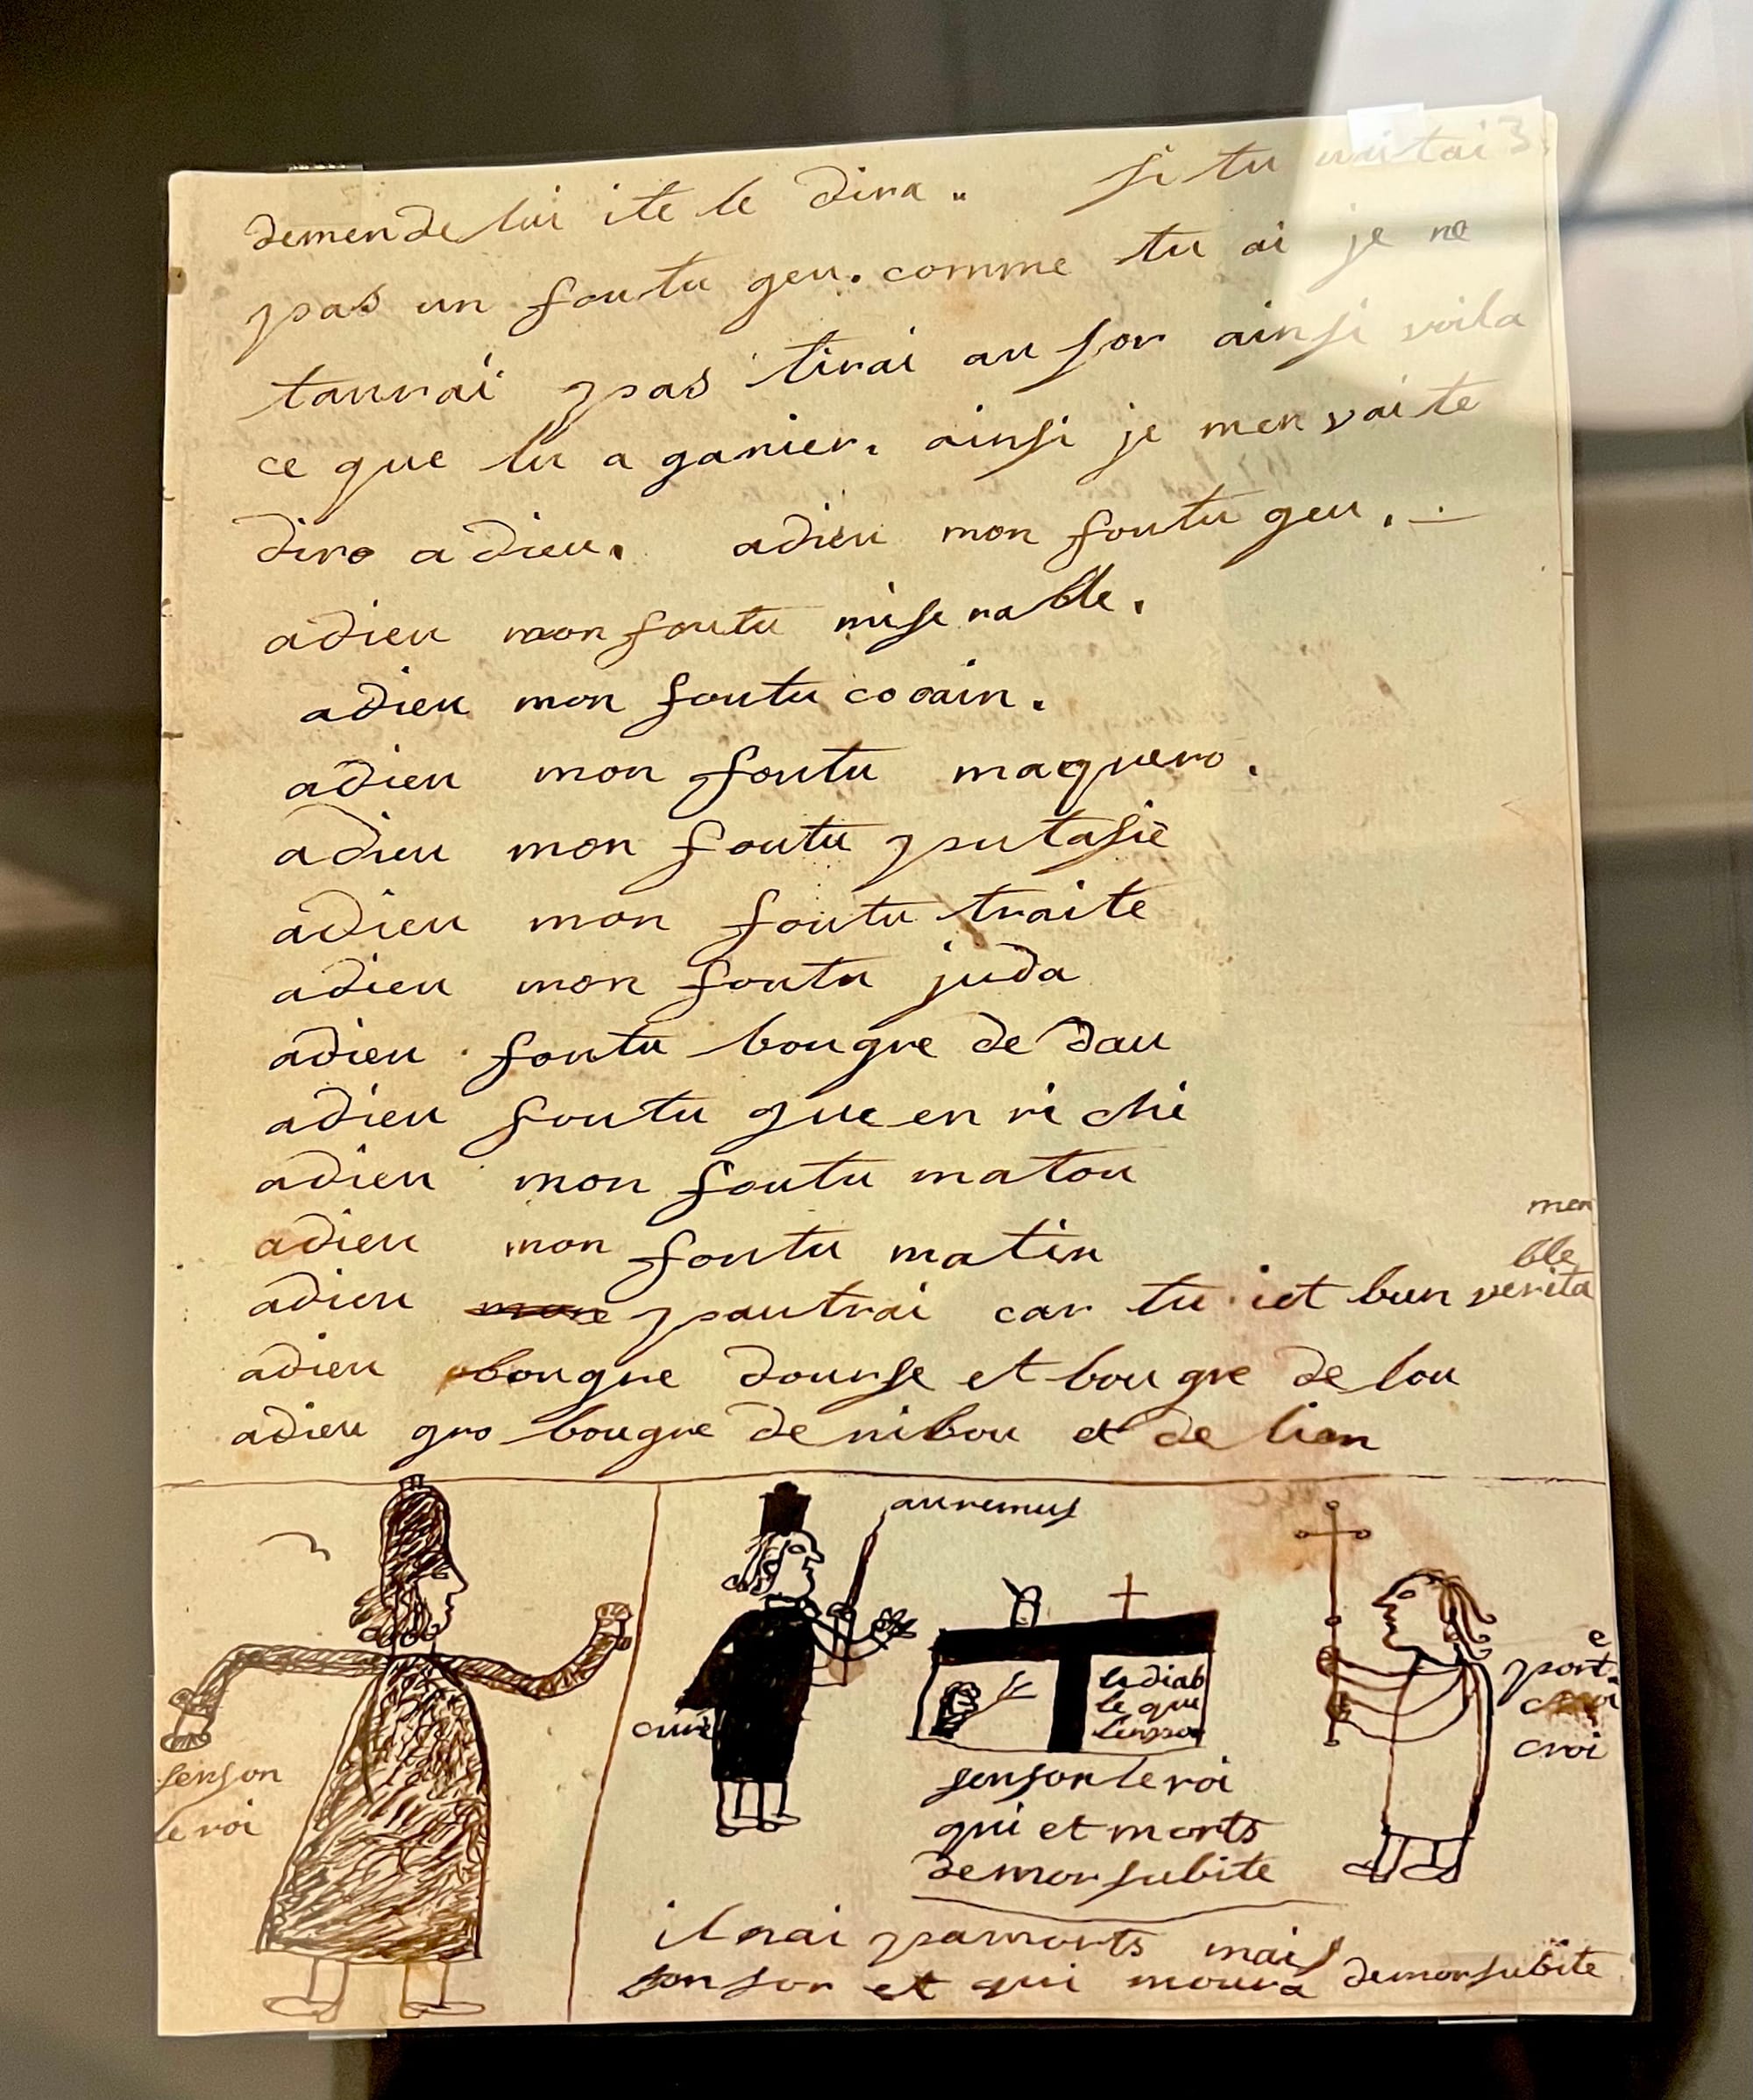 demende lui ite le dira. si tu
pas un foutu geu. comme tu ai je ne
taurai pas tirai au sor ainsi voila
ce que tu a ganier. ainsi je men vai te
dire adieu. adieu mon foutu geu.
adieu mon foutu miserable.
adieu mon foutu cocain.
adieu mon foutu maquero.
adieu mon foutu putasie
adieu mon foutu traite
adieu mon foutu juda
adieu foutu bougre de dau
adieu foutu gueenrichi
adieu mon foutu matou
adieu mon foutu matin
men
ble
adieu pautrai car tu iet bun verita
adieu bougre dourse et bougre de lou
adieu gro bougre de nibou et de lion
auremus
curé
le diab
le que
senson le roi
qui et morts
de mor subite
e
port
croi
senson
le roi
il nai pamorts mais
son sor et qui moura demorsubite